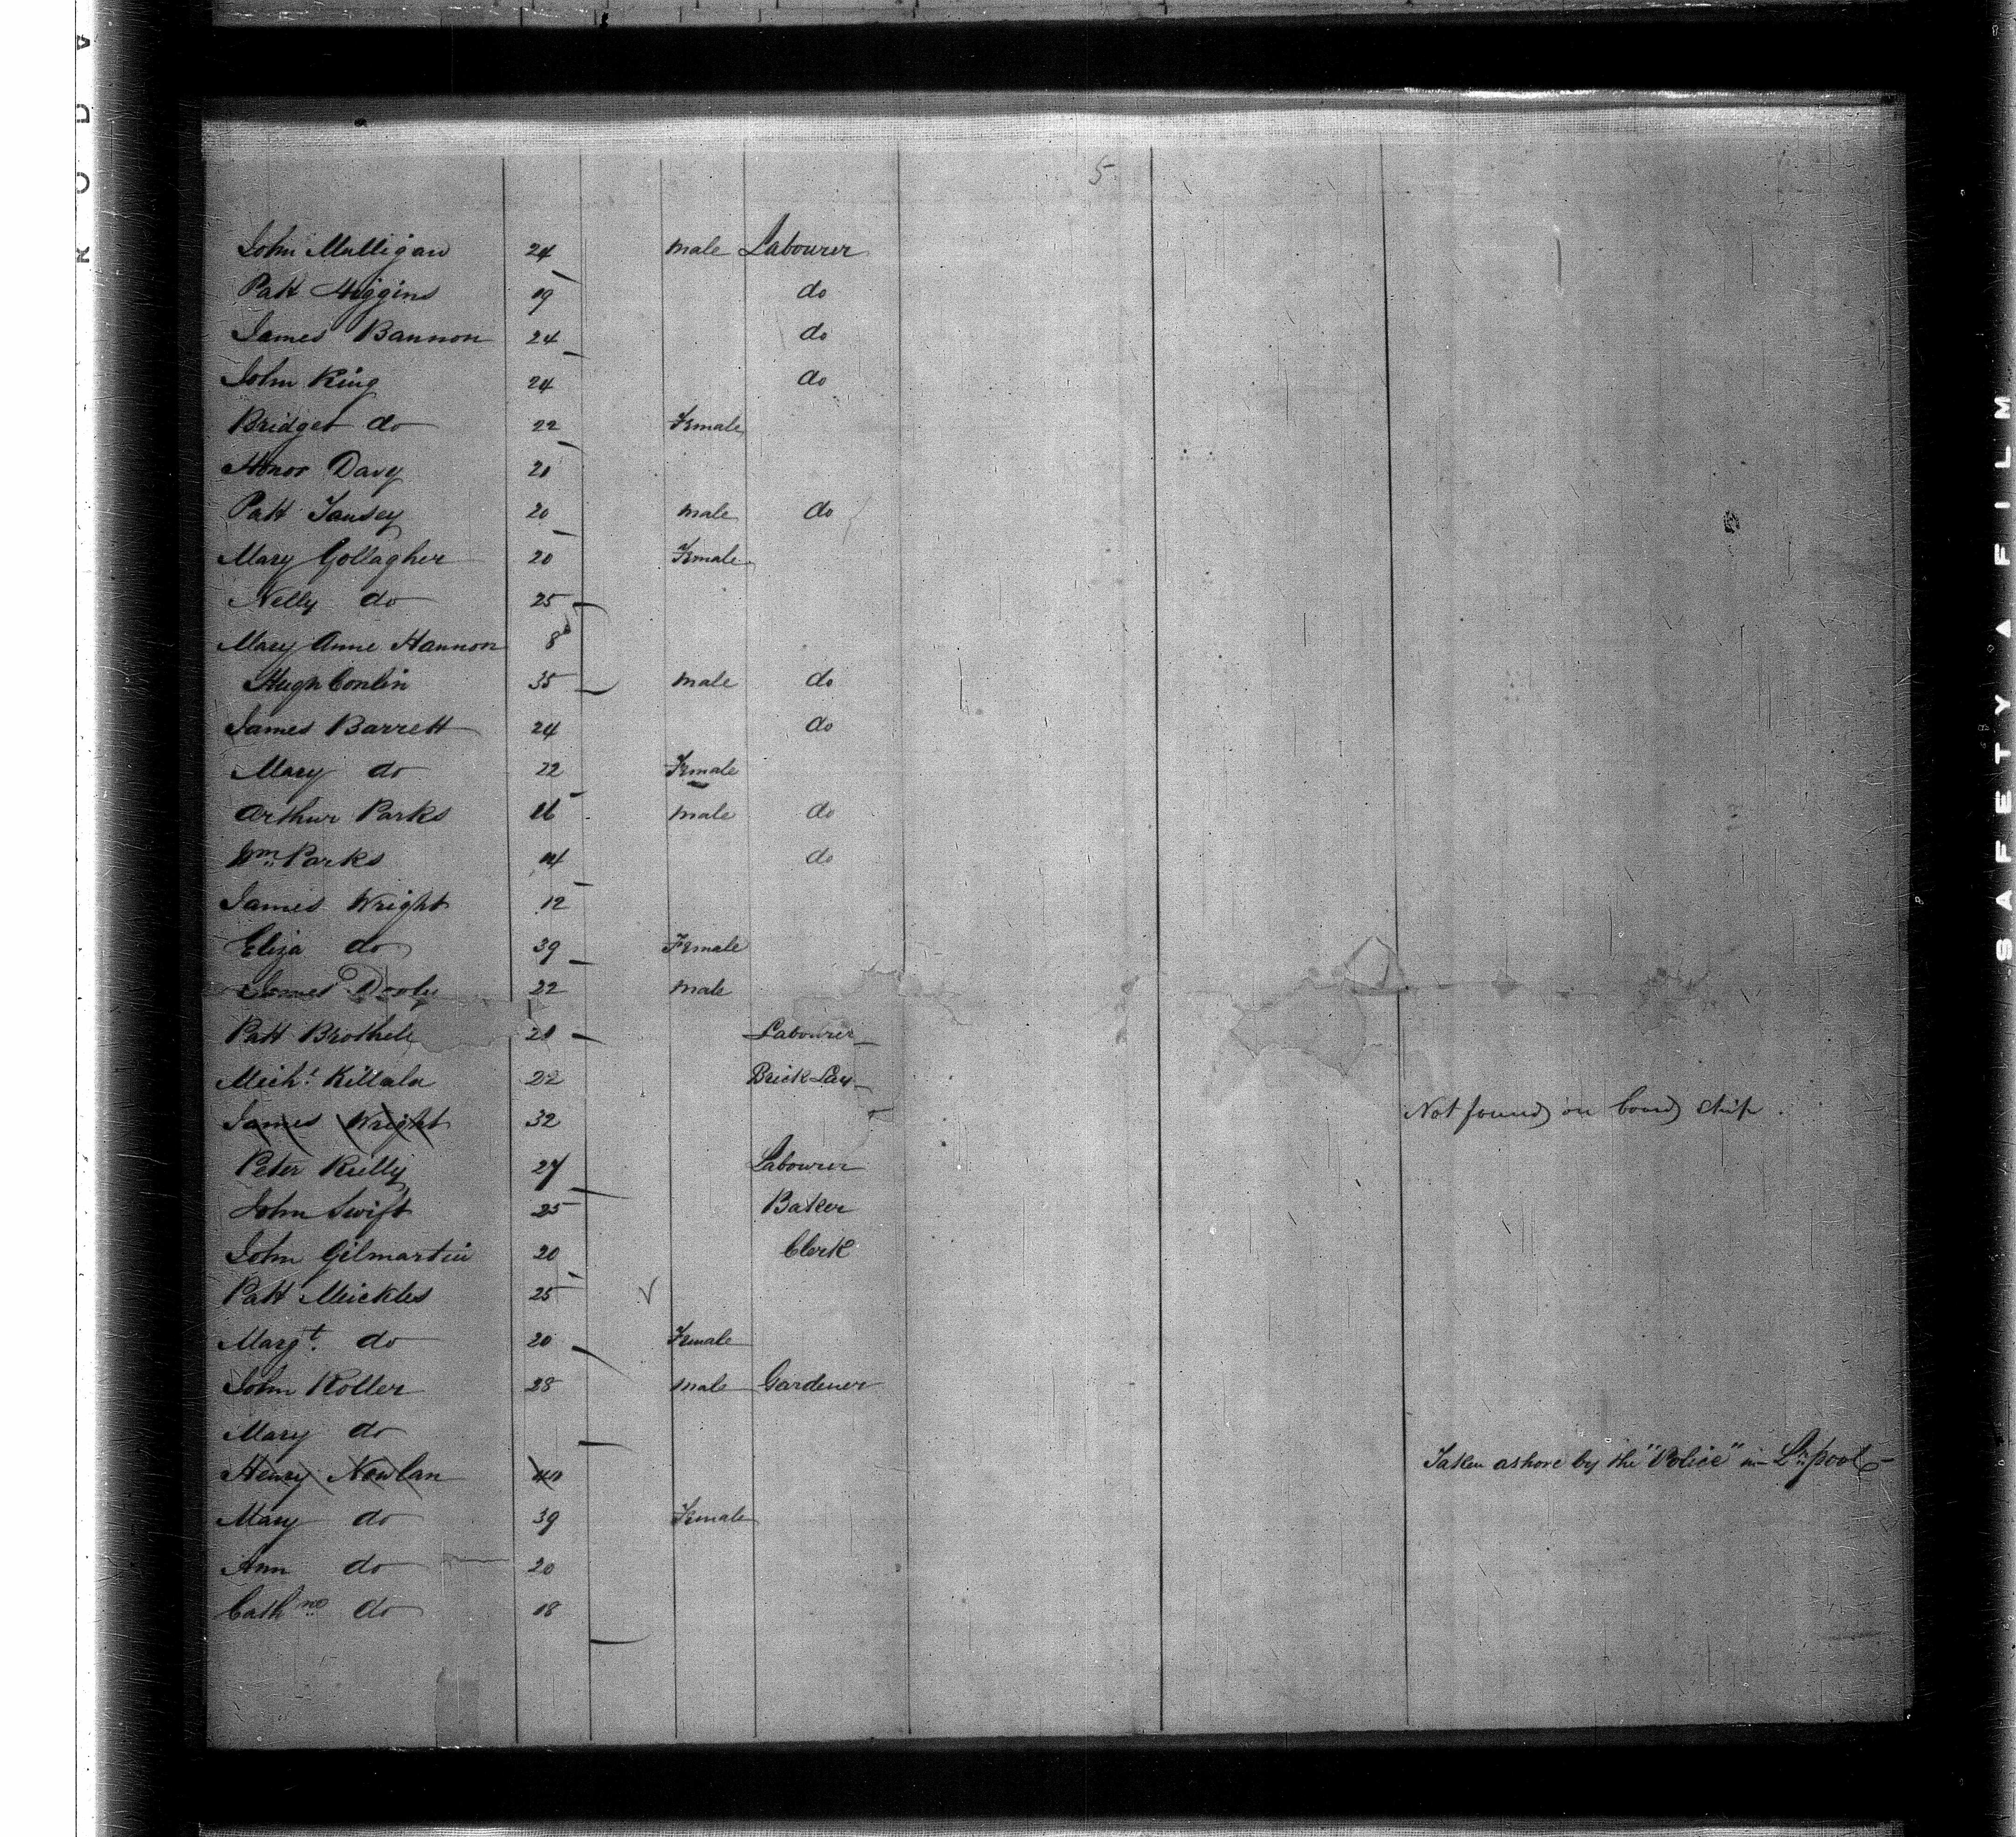 5
John Mulligan 24 male Labourer
Patt Higgins 19 do
James Bannon 24 do
John King 24 do
Bridget do 22 Female
Honor Davy 20
Patt Tansey 20 male do
Mary Gollagher 20 Female
Nelly do 25
Mary Anne Hannon 8
Hugh Conlin 35 male do
James Barrett 24 do
Mary do 22 Female
Arthur Parks 16 male do
Wm Parks 14 do
James Wright 12
Eliza do 39 Female
James Dooly 22 male
Patt 20 Labourer
Michl Killala 22 Brick Lay
James Wright 32 Not found on board ship.
Peter Kelly 27 Labourer
John Swift 25 Baker
John Gilmartin 20 Clerk
Patt Mickles 25
Margt. do 20 Female
John Roller 28 male Gardener
Mary do
Henry Nowlan 40 Taken ashore by the "Police" in L.pool
Mary do 39 Female
Ann do 20
Cathne do 18
SAFETY A FILM